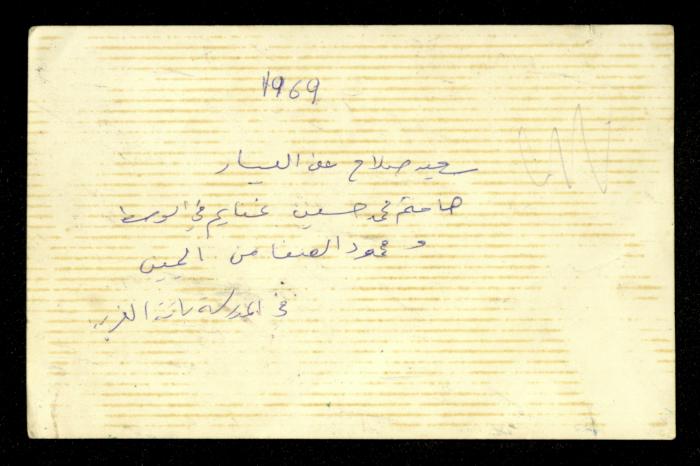 1969
سعيد صلاح عن اليسار
محمد حسين غنايم في الوسط
و محمود الصفا من اليمين
في المدرسة باقة الغربيه